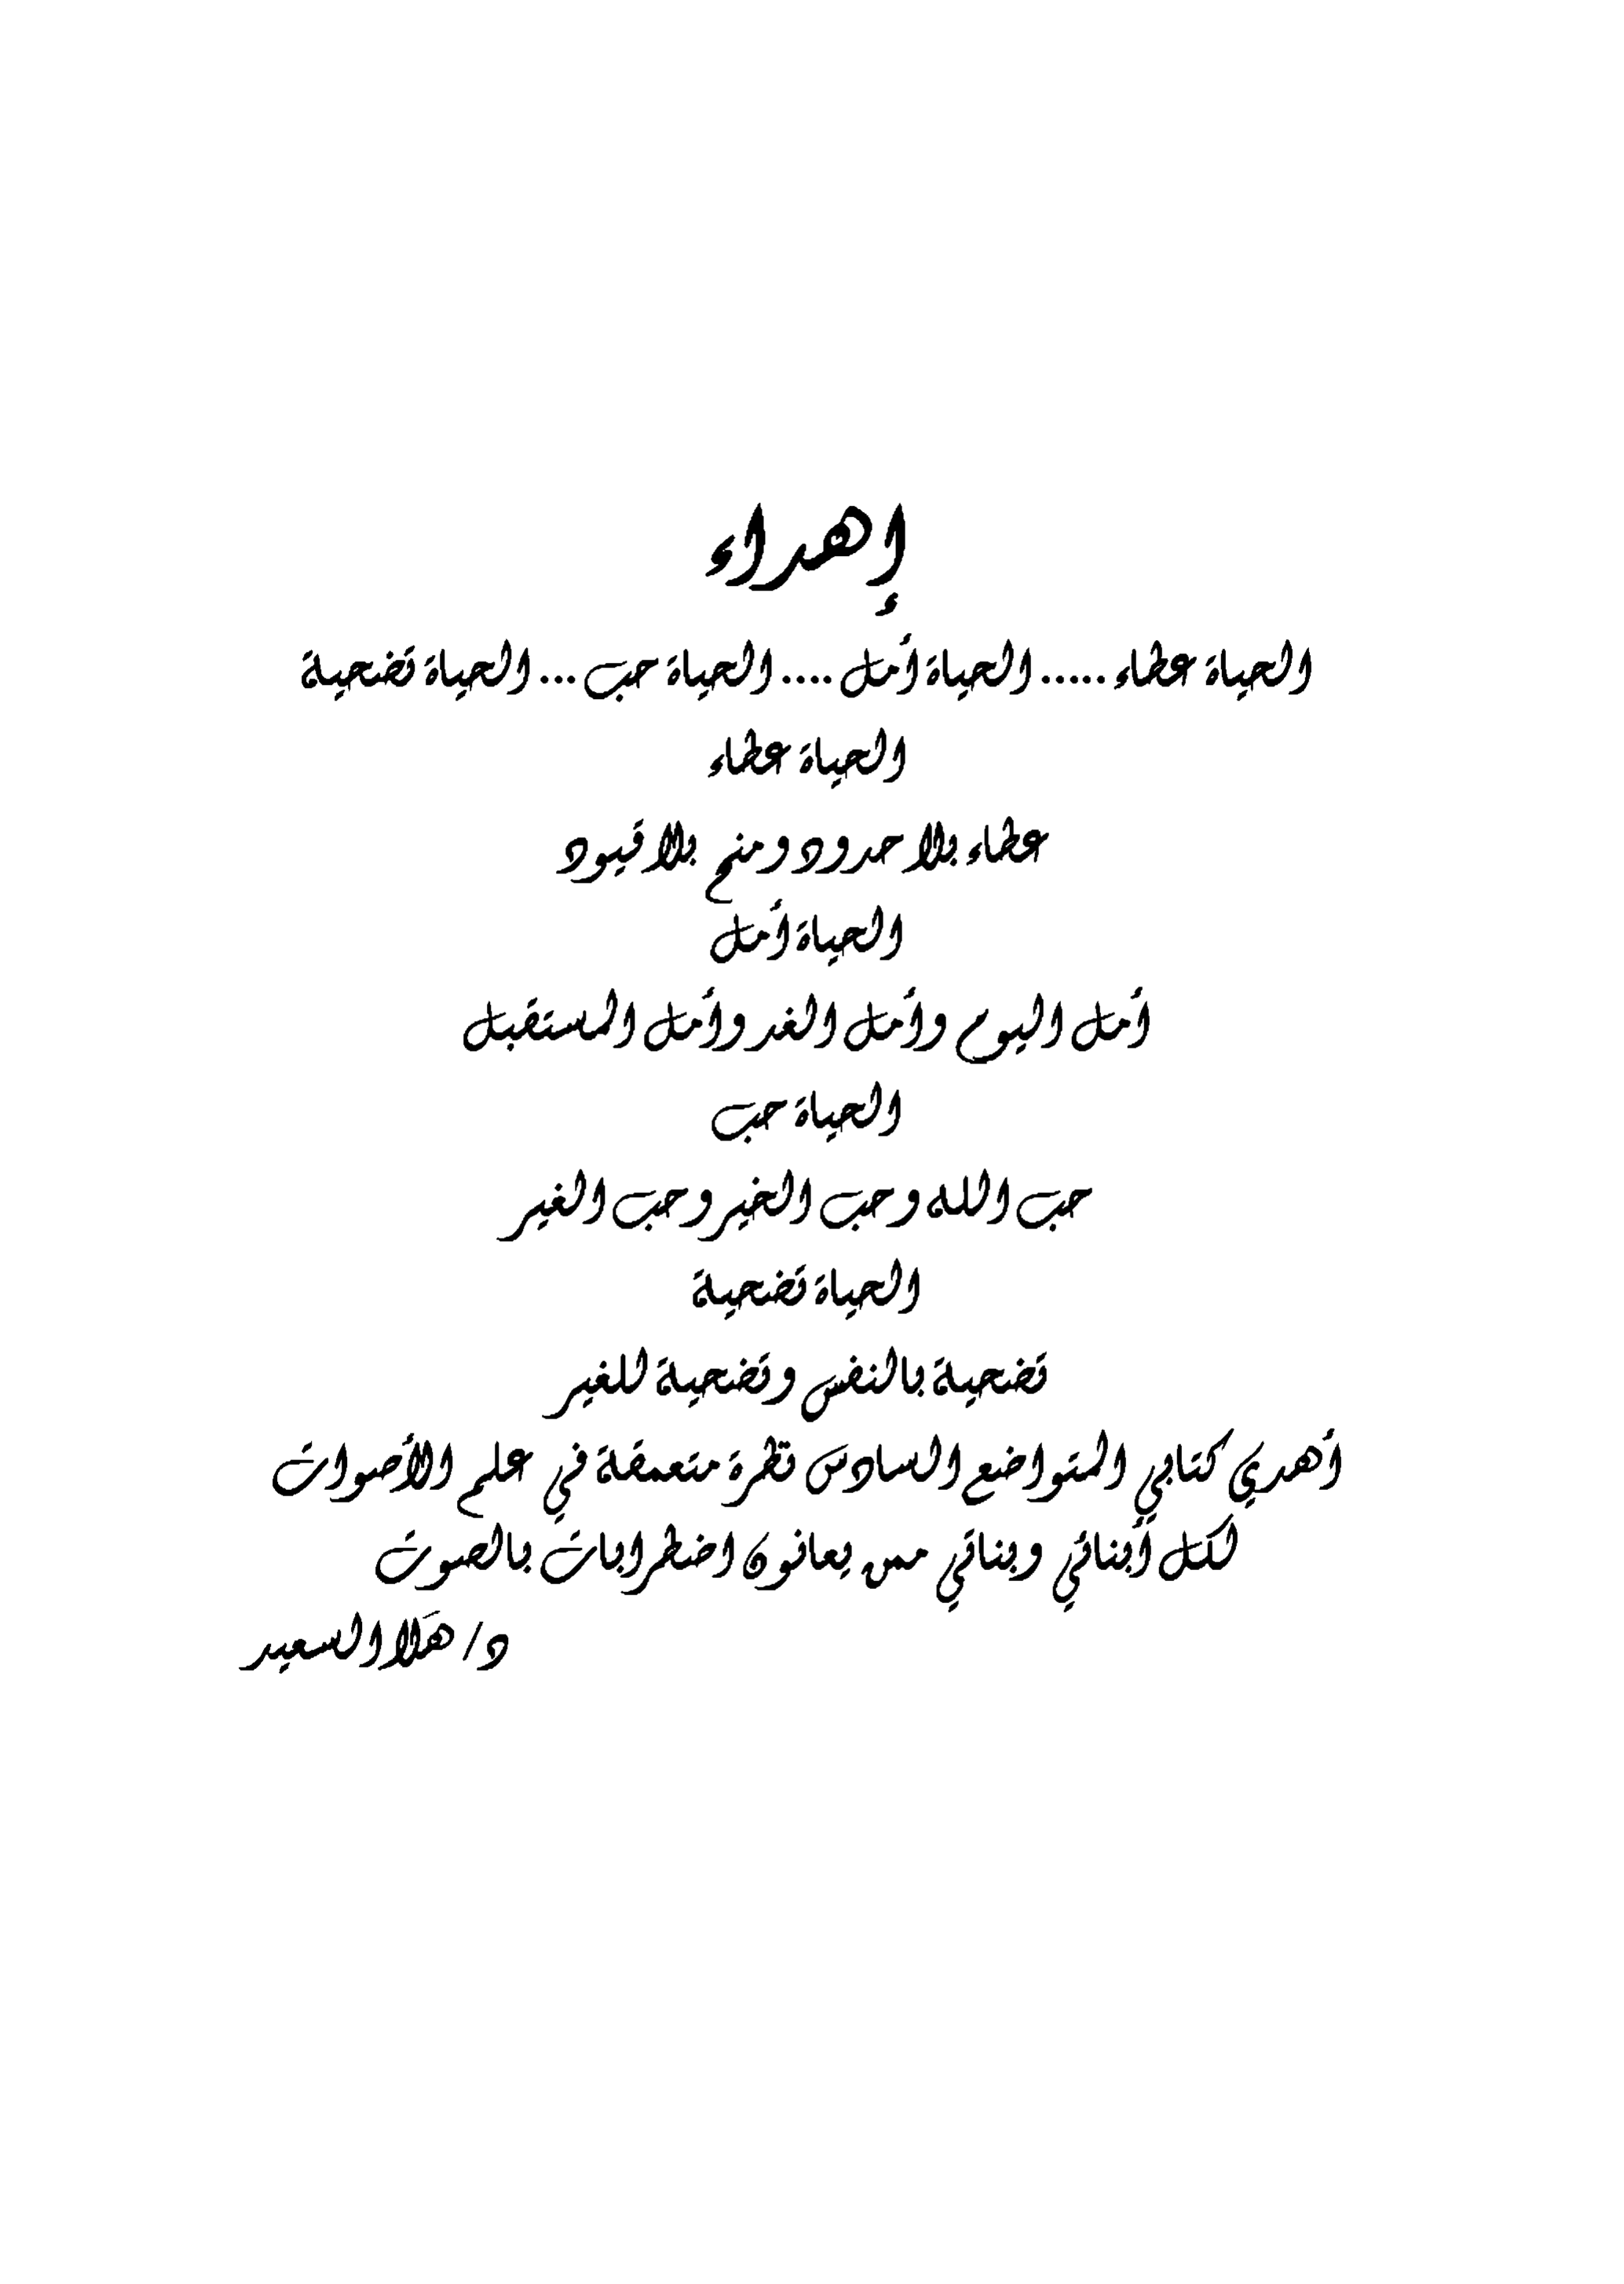 إهداء
الحياة عطاء ..... الحياة أمل .... الحياة حب ... الحياة تضحية
الحياة عطاء
عطاء بلا حدود ومنح بلا قيود
الحياة أمل
أمل اليوم وأمل الغد وأمل المستقبل
الحياة حب
حب الله وحب الخير وحب الغير
الحياة تضحية
تضحية بالنفس وتضحية للغير
أهدي كتابي المتواضع السادس نظرة متعمقة في علم الأصوات
لكل أبنائي وبناتي ممن يعانون اضطرابات بالصوت
د/ هَلا السعيد